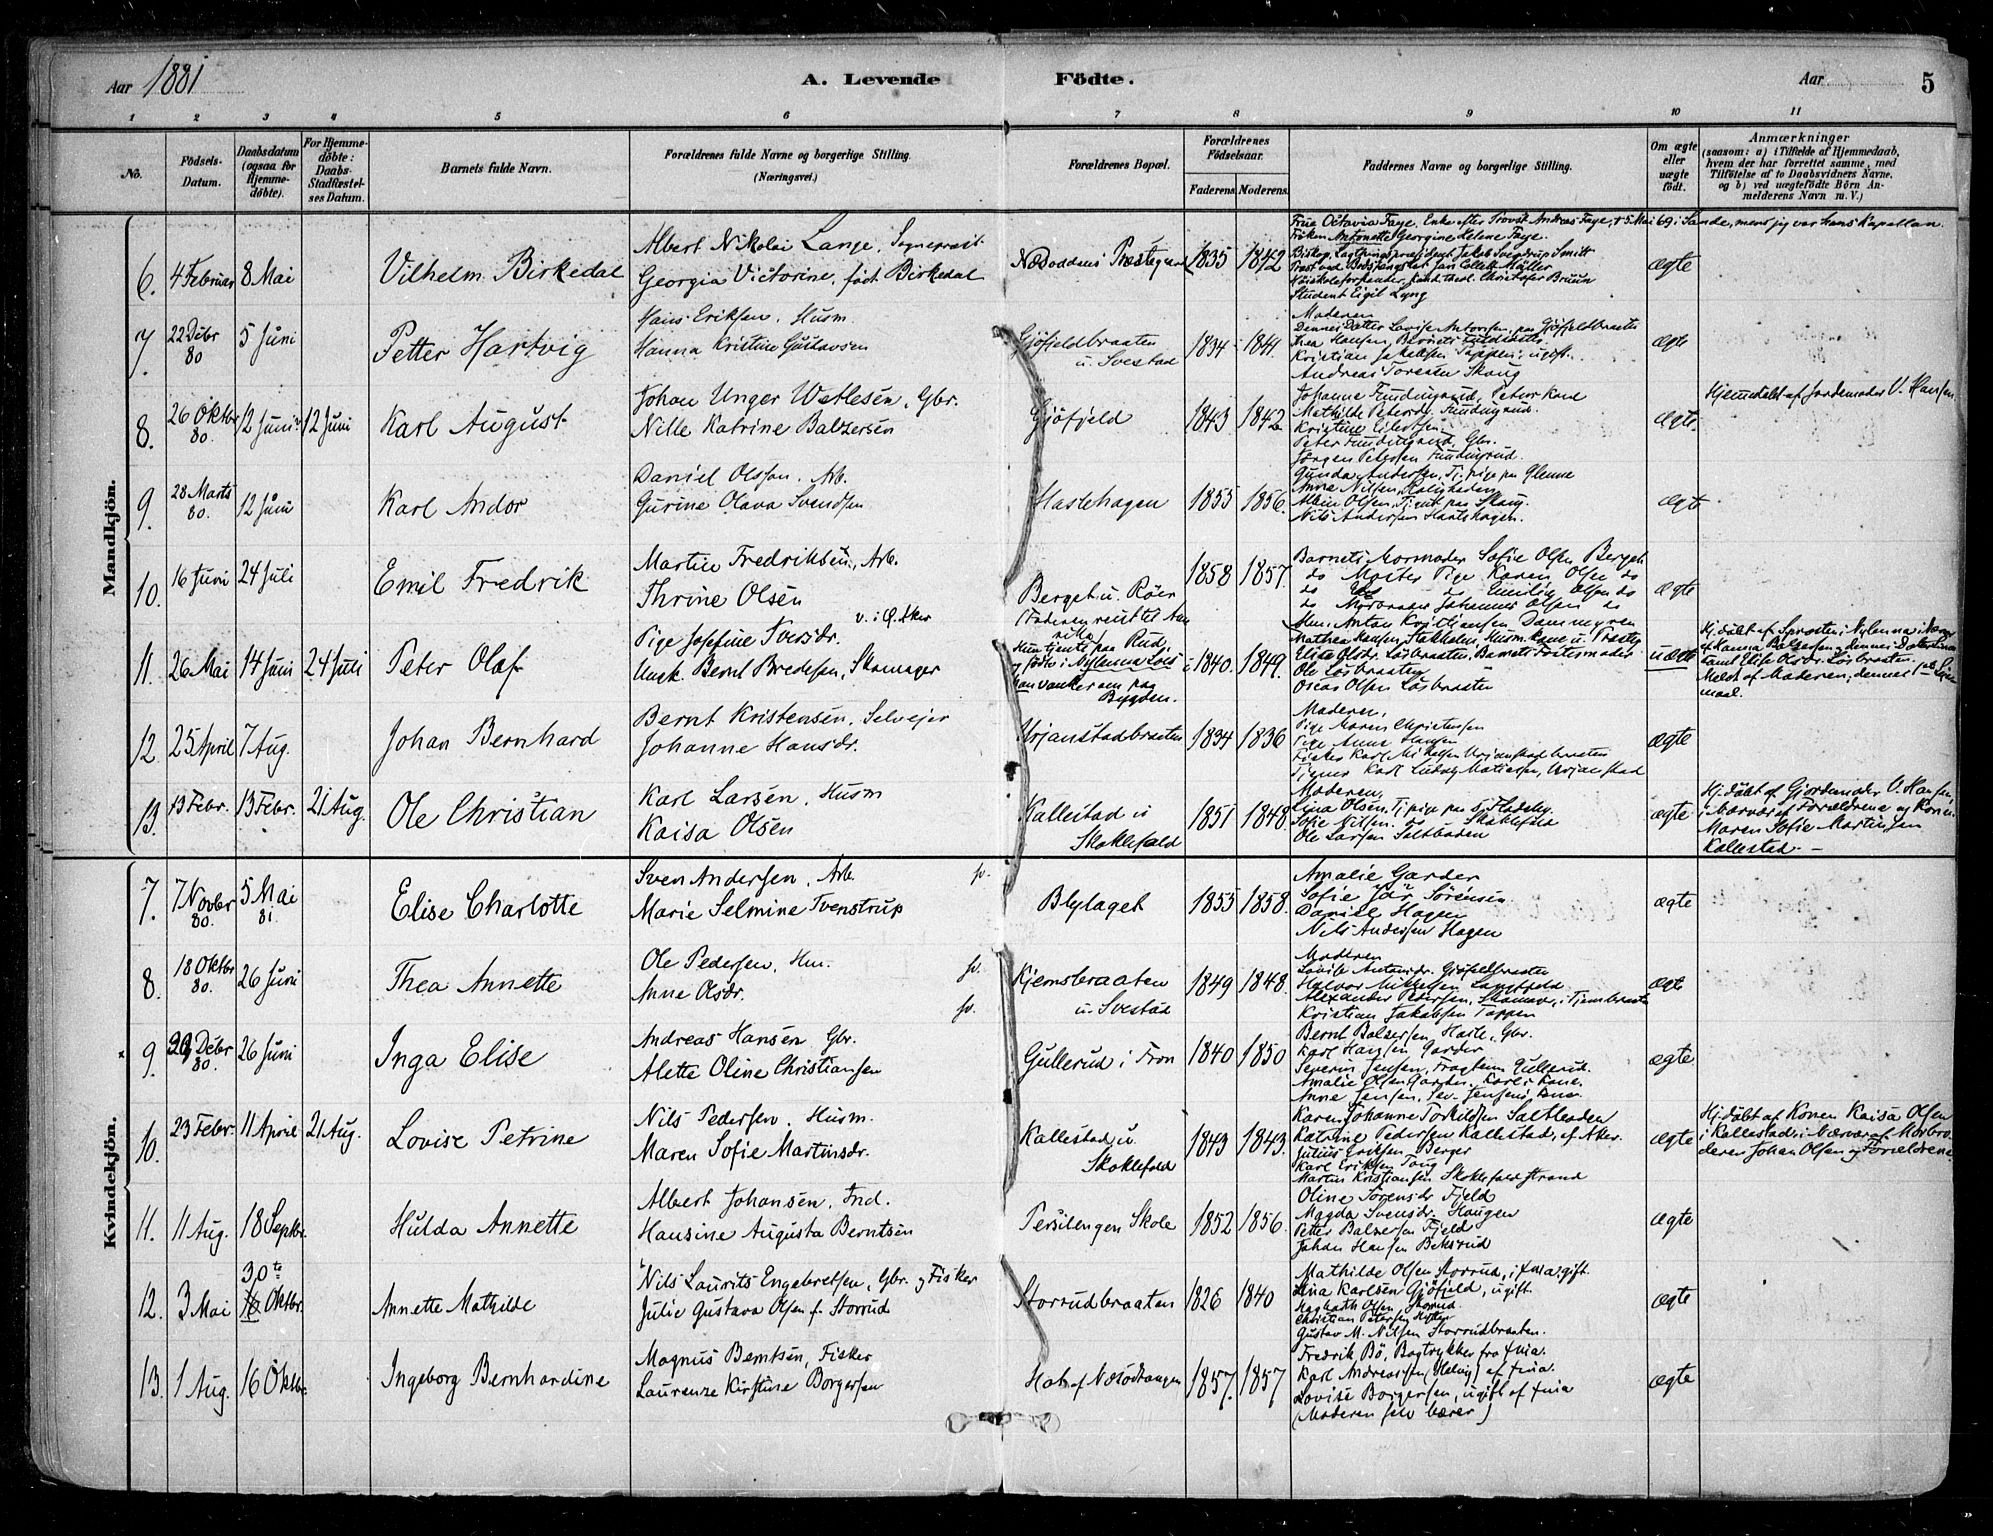 Aar 1881
A. Levende Födte.
Aar
5
1 2 3 4 5 6 7 8 9 10 11
No.
Födsels-Datum.
Daabsdatum (ogsaa for Hjemmedöbte).
For Hjemmedöbte: Daabs-Stadfæstelses Datum.
Barnets fulde Navn.
Forældrenes fulde Navne og borgerlige Stilling. (Næringsvei.)
Forældrenes Bopæl.
Forældrenes Födselsaar.
Faderens. Moderens.
Faddernes Navne og borgerlige Stilling.
Om ægte eller uægte födt.
Anmærkninger (saasom: a) i Tilfælde af Hjemmedaab, hvem der har forrettet samme, med Tilföielse af to Daabsvidners Navne, og b) ved uægtefödte Börn Anmelderens Navn m. V.)
Mandkjön.
6. 4 Februar 8 Mai Vilhelm Birkedal
Albert Nikolai Lange, Sogneprest
Georgia Victorine, født Birkedal
Næsoddens Præstegaard 1835 1842
Frue Octavia Faye, Enke efter Provst Andreas Faye, † 5 Mai 69 i Sande, mens jeg var hans Kapellan
Frøken Antonette Georgine Helene Faye
Biskop, Lagthingspræsident Jakob Sverdrup Smitt
Præst ved Bodsfængslet Jan Collett Müller
Høiskoleforstander, Kand. theol. Christofer Bruun
Student Eigil Lyng
ægte
7. 22 Debr 80 5 Juni Petter Hartvig
Hans Eriksen, Husm
Hanna Kristine Gustavsen
Gjøfjeldbraaten u. Svestad 1834 1841
Moderen
Dennes Datter Lovise Antonsen, paa Gjøfjeldbraaten
Thea Hansen, Barnets
Kristian Jakobsen Tappen, ugift
Andreas Toresen Skaug
ægte
8. 26 Oktbr 80. 12 Juni 12 Juni Karl August
Johan Unger Wetlesen, Gbr.
Nille Katrine Balzersen
Gjøfjeld 1843 1842
Johanne Fundingsrud, Peters kone
Mathilde Petersdr. Fundingsrud
Kristine Eilertsen
Peter Fundingsrud, Gbr.
Jørgen Petersen Fundingsrud
ægte.
Hjemdøbt af Jordemoder V. Hansen
9. 28 Marts 80. 12 Juni Karl Andor
Daniel Olsson, Arb.
Gurine Olava Svendsen
Haslehagen 1855 1856.
Gunda Andersen, Tj.pige paa Glenne
Anne Nilsen,
Albin Olsen, Tj.gut paa Skaug
Nils Andersen Haslehagen.
ægte
10. 16 Juni 24 Juli Emil Fredrik
Martin Fredriksen, Arb.
Thrine Olsen
v. i Ø. Aker
Berget u. Røer 1858 1857
Barnets Mormoder Sofie Olsen Berget
do Moster Pige Karen Olsen do
do do do Emilie Olsen do
do Morbroder Johannes Olsen do
Anton Kristiansen Dammyren
ægte
11. 26 Mai 14 Juni 24 Juli Peter Olaf
Pige Josefine Iversdr.
Ungk. Bernt Bredesen, Skomager
Hun tjente paa Rud,
han vanker om paa Bygden.
1840. 1849.
Mathea Hansen, Stokholm, Husm.kone u. Froster
Elise Olsdr. Løsbraaten, Barnets Fostermoder
Ole Løsbraaten
Oscar Olsen Løsbraaten
uægte
samt Elise Olsdr. Løsbraaten.
Meldt af Moderen; dennes 1ste Leiermaal.
12. 25 April 7 Aug. Johan Bernhard
Bernt Kristensen, Selveier
Johanne Hansdr.
Urjanstadbraaten 1834 1836
Moderen,
Pige Maren Christensen
Pige Anna Hansen
Fisker Karl Mikelsen Urjanstadbraaten
Tjener Karl Ludvig Matiesen, Urjanstad
ægte
13. 13 Febr. 13 Febr. 21 Aug. Ole Christian
Karl Larsen, Husm
Kaisa Olsen
Kallestad u. Skoklefald 1851 1848
Moderen,
Lina Olsen, Tj.pige paa S. Fladeby
Sofie Nilsen, Skoklefald
Ole Larsen Saltboden
ægte
Hj.døbt af Gjordemoder V. Hansen,
i Nærvær af Forældrene og Konen
Maren Sofie Martinsen
Kallestad. –
Kvindekjön.
7. 7 Novbr 80. 5 Mai 81. Elise Charlotte
Sven Andersen, Arb.
Marie Selmine Tvenstrup
Blylaget 1855 1858.
Amalie Garder
Sofie Jär Sörensen
Daniel Hagen
Nils Andersen Hagen
ægte
8. 18 Oktbr 80. 26 Juni Thea Annette
Ole Pedersen, Hm.
Anne Olsdr.
Kjernsbraaten u. Svestad 1849 1848.
Moderen
Lovise Antonsdr. Gjøfjeldbraaten
Halvor Mikkelsen Langfjeld
Alexander Pedersen, Skomager, i Tjernsbraaten
Kristian Jakobsen Tappen
ægte
9. 29 Debr 80. 26 Juni Inga Elise
Andreas Hansen, Gbr.
Alette Oline Christiansen
Gullerud i Fron 1840 1850
Bernt Balzersen Hasle, Gbr.
Karl Hansen Garder
Severin Jensen, Gullerud.
Amalie Olsen Garder, Karls Kone.
Anne Jensen, Sev. Jensens Kone
ægte
10. 23 Febr. 11 April 21 Aug. Lovise Petrine
Nils Pedersen, Husm.
Maren Sofie Martinsdr.
Kallestad u. Skoklefald 1843 1843.
Karen Johanne Torkildsen Saltboden
Katrine Pedersen Kallestad, af Aker.
Julius Eriksen Berger
Karl Eriksen Toug
Martin Kristiansen Skoklefaldstrand
ægte
Hj.døbt af Konen Kaisa Olsen
i Kallestad, i Nærvær af Morbroderen
Johan Olsen og Forældrene
11. 11 Aug. 18 Septbr. Hulda Annette
Albert Johansen, Ind.
Hansine Augusta Berntsen
Persilengen Skole 1852 1856.
Oline Sørensdr. Fjeld
Magda Svensdr. Haugen
Petter Balzersen Fjeld
Johan Hansen Beksrud
ægte
12. 3 Mai 30te Oktbr. Annette Mathilde
Nils Laurits Engebretsen, Gbr. og Fisker
Julie Gustava Olsen f. Storrud
Storrudbraaten 1826 1840
Mathilde Olsen Storrud, i Xnia, ugift.
Lina Karlsen Gjøfjeld, ugift
Hagbarth Olsen, Storrud.
Christian Petersen Hytten
Gustav M. Nilsen Storrudbraaten.
ægte
13. 1 Aug. 16 Oktbr. Ingeborg Bernhardine
Magnus Berntsen, Fisker
Laurenze Kirstine Borgersen
Hol af Næsodtangen 1857. 1857
Fredrik Bö, Bogtrykker fra Xnia.
Karl Andreassen (Helvig) af Xnia.
Lovise Borgersen, ugift af Xnia
(Moderen selv bærer)
ægte